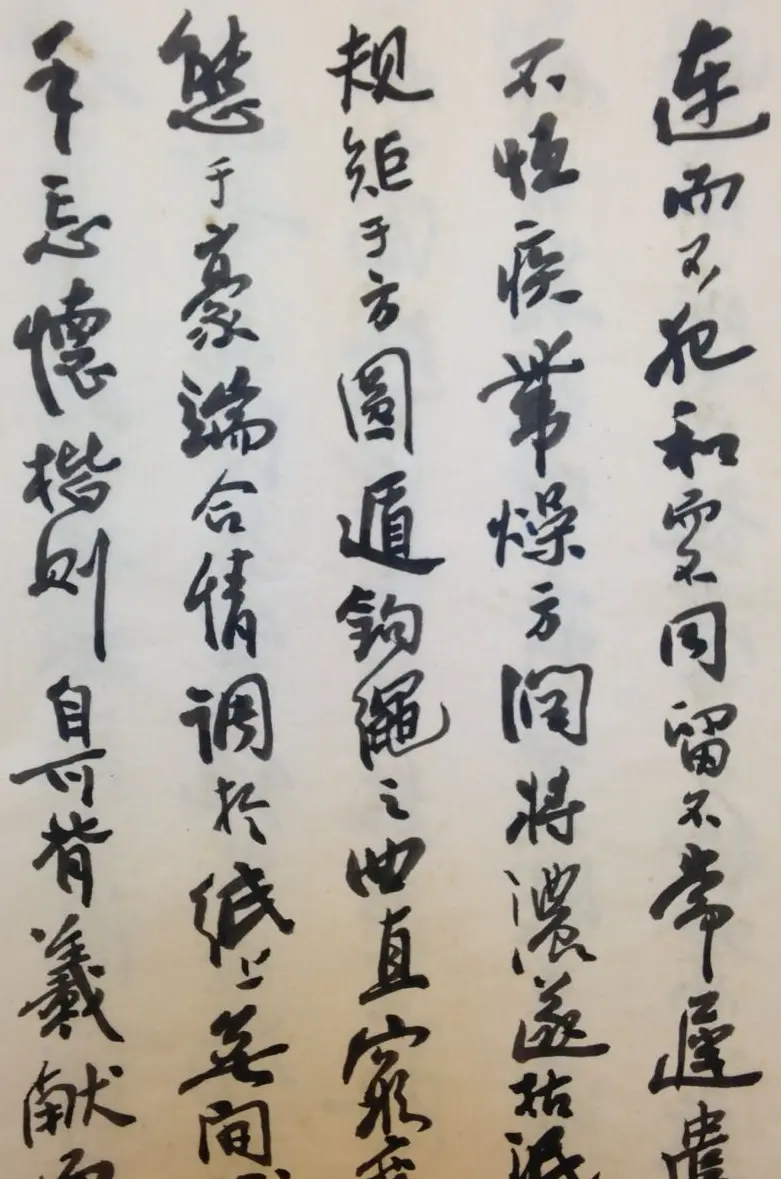 違而不犯和而不同留不常遲遣
不恒疾帶燥方潤将濃遂枯泯
规矩于方圓遁鈎繩之曲直窮
態于豪端合情調於紙上無间
手忘懷楷则自可背羲献而